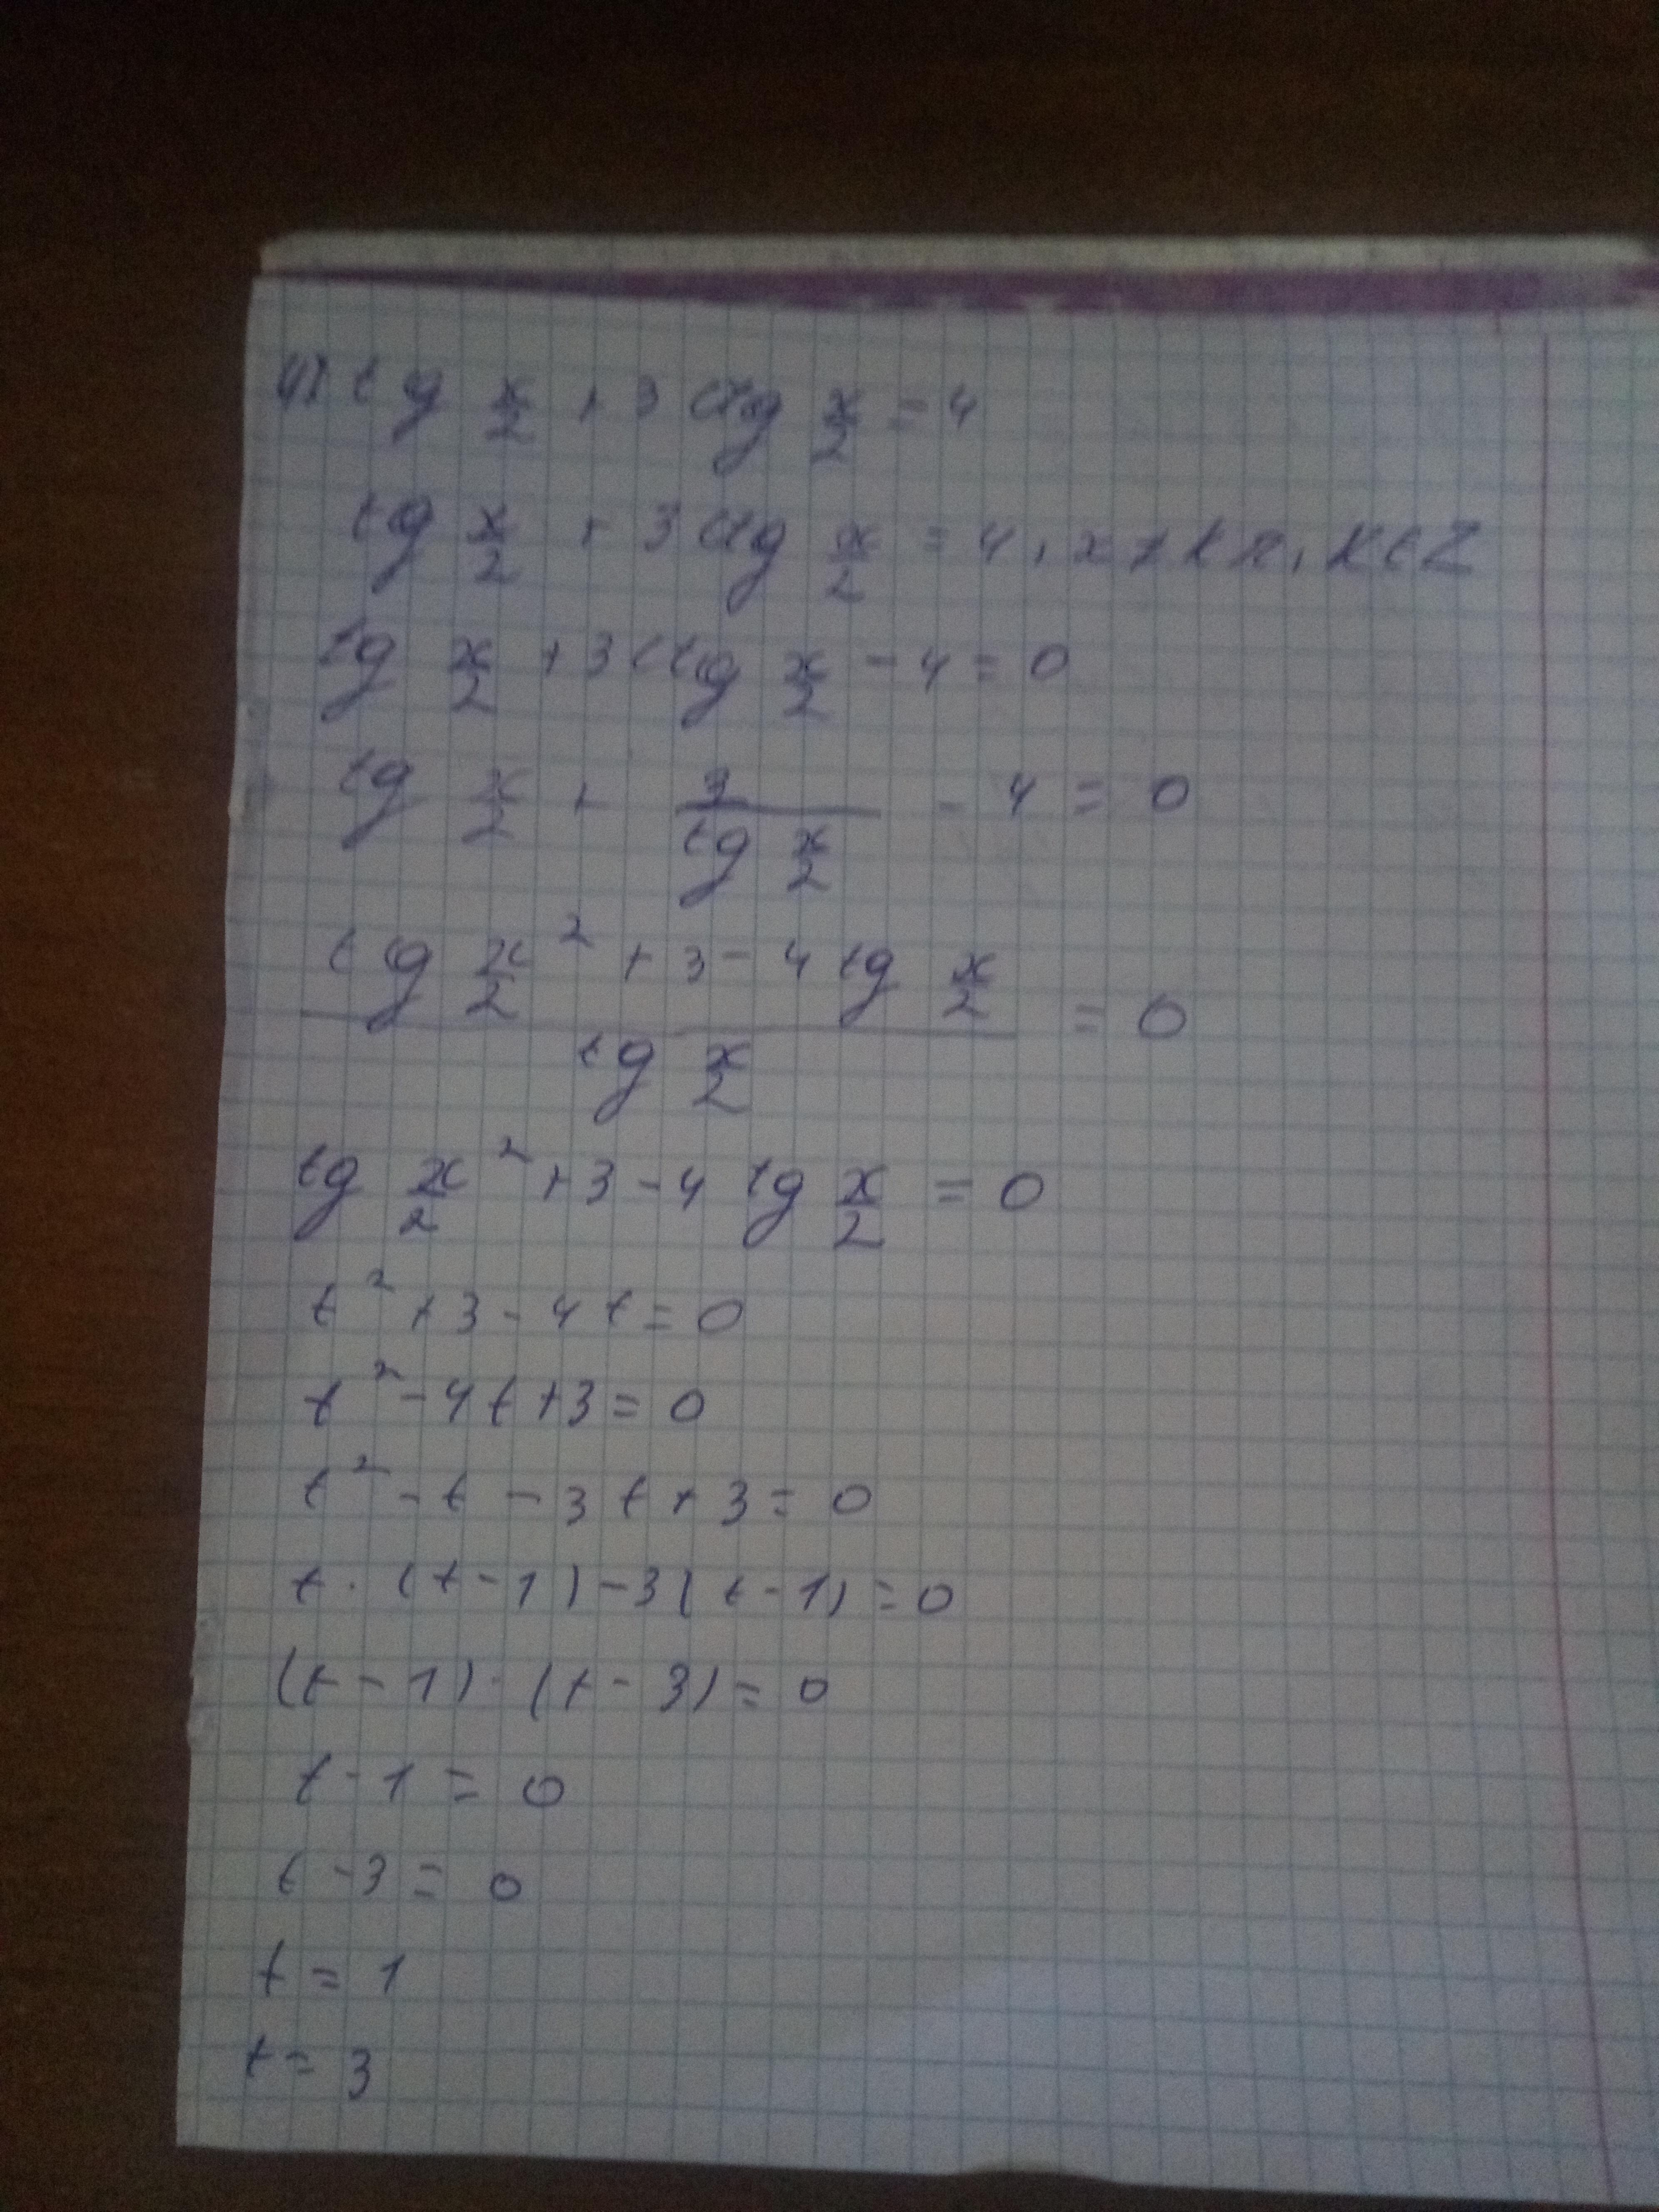 4) tg x/2 + 3 ctg x/2 = 4
tg x/2 + 3 ctg x/2 = 4, x ≠ kπ, k ∈ Z
tg x/2 + 3 ctg x/2 - 4 = 0
tg x/2 + 3/(tg x/2) - 4 = 0
(tg x/2² + 3 - 4 tg x/2)/(tg x/2) = 0
tg x/2² + 3 - 4 tg x/2 = 0
t² + 3 - 4t = 0
t² - 4t + 3 = 0
t² - t - 3t + 3 = 0
t · (t - 1) - 3(t - 1) = 0
(t - 1) · (t - 3) = 0
t - 1 = 0
t - 3 = 0
t = 1
t = 3